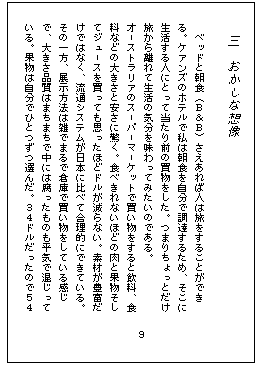 三　おかしな想像
　ベッドと朝食（Ｂ＆Ｂ）さえあれば人は旅をすることができ
る。ケアンズのホテルで私は朝食を自分で調達するため、そこに
生活する人にとって当たり前の買物をした。つまりちょっとだけ
旅から離れて生活の気分を味わってみたいのである。
オーストラリアのスーパーマーケットで買い物をすると飲料、食
料などの大きさと安さに驚く。食べきれないほどの肉と果物そし
てジュースを買っても思ったほどドルが減らない。素材が豊富だ
けではなく、流通システムが日本に比べて合理的にできている。
その一方、展示方法は雑でまるで倉庫で買い物をしている感じ
で、大きさ品質はまちまちで中には腐ったものも平気で混じって
いる。果物は自分でひとつずつ選んだ。３４ドルだったので５４
9